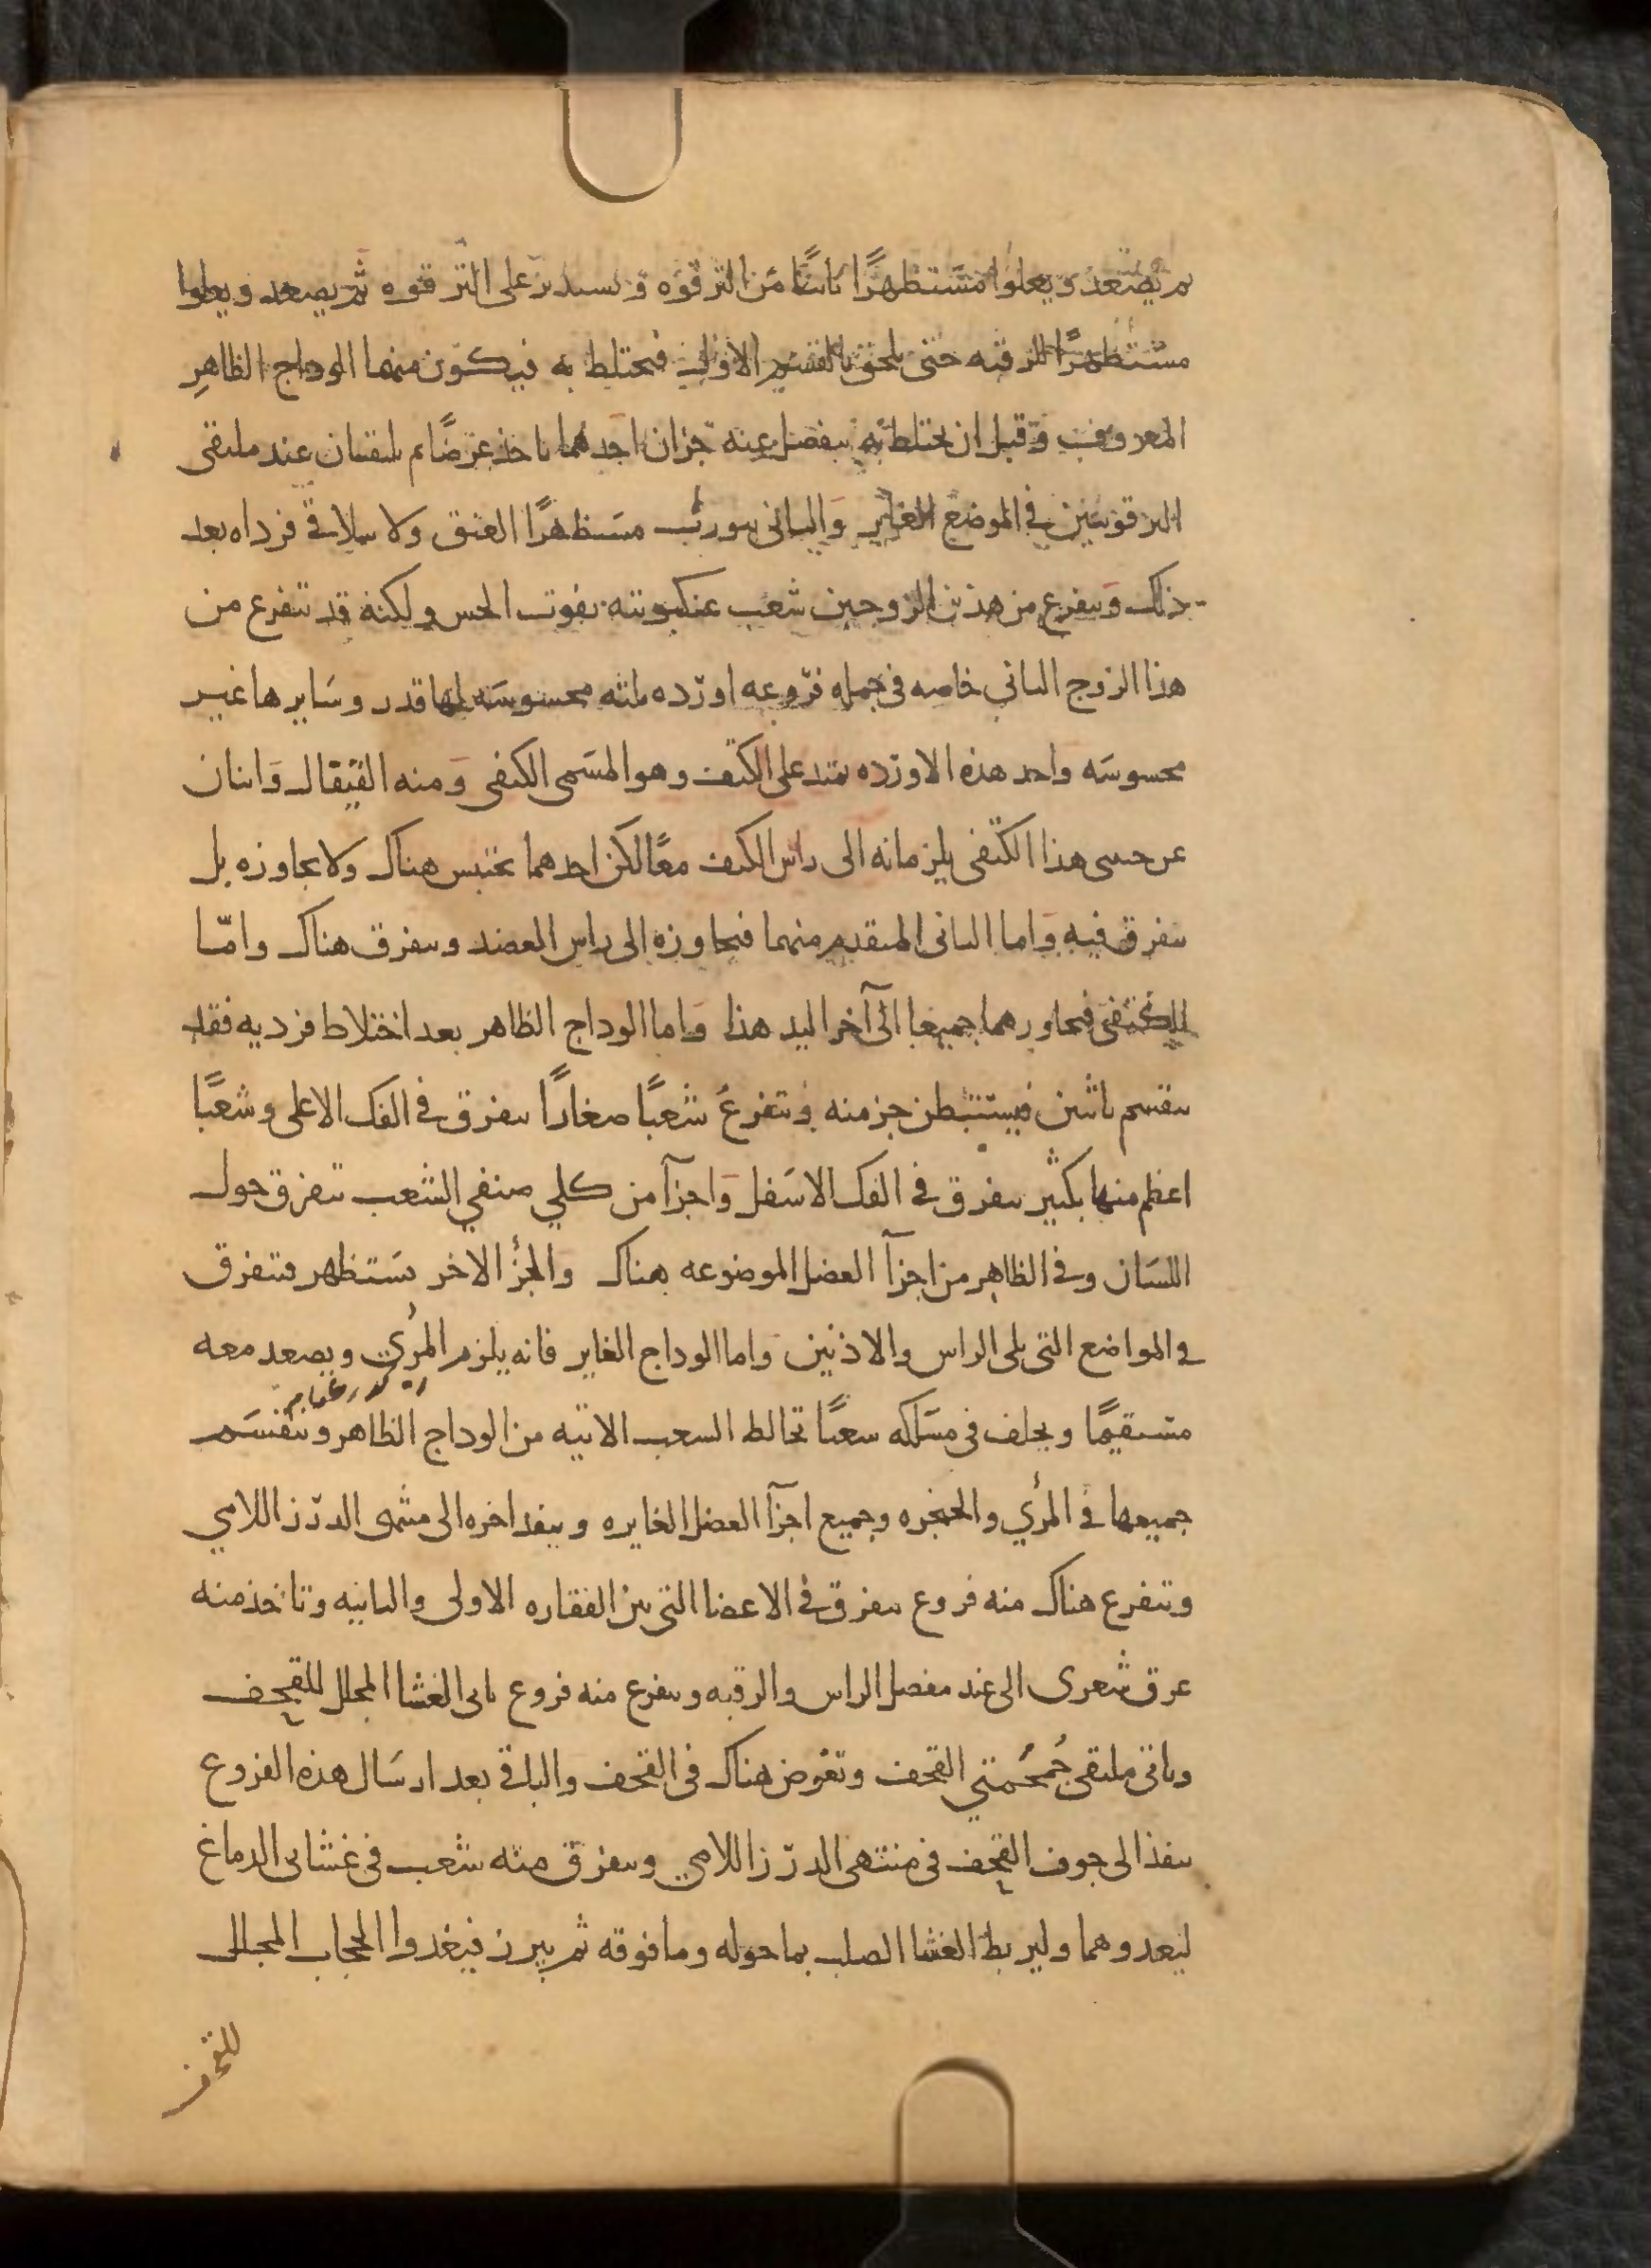 ثم يصعد ويعلوا مستظهرًا ثانيًا من الترقوه ويستدير على الترقوه ثم يصعد ويعلوا
مستظهرًا للرقبه حتى يلحق بالقسم الاول فيختلط به فيكون منهما الوداج الظاهر
المعروف وقبل ان يختلط به ينفصل عنه جزان احدهما ياخذ عرضًا ثم يلتقيان عند ملتقى
الترقوتين في الموضع الغاير والثاني يتورب مستظهرًا العنق ولا يتلاقى فرداه بعد
ذلك ويتفرع من هذين الزوجين شعب عنكبوتيه تفوت الحس ولكنه قد تتفرع من
هذا الزوج الثاني خاصه في جمله فروعه اورده ثلثه محسوسه لها قدر وساير ها غير
محسوسه واحد هذه الاورده يمتد على الكتف وهو المسمى الكتفي ومنه القيفال واثنان
عن جنبي هذا الكتفي يلزمانه الى راس الكتف معًا لكن احدهما يحتبس هناك ولا يجاوزه بل
يتفرق فيه واما الثاني المتقدم منهما فيجاوزه الى راس العضد ويتفرق هناك وامّا
الكتفي فيجاورهما جميعا الى آخر اليد هذا واما الوداج الظاهر بعد اختلاط فرديه فقد
ينقسم باثنين فيستبطن جز منه ويتفرع شعبًا صغارًا يتفرق في الفك الاعلى وشعبًا
اعظم منها بكثير يتفرق في الفك الاسفل واجزآ من كلي صنفي الشعب تتفرق حول
اللسان وفي الظاهر من اجزآ العضل الموضوعه هناك والجزُ الاخر يستظهر فيتفرق
في المواضع التي يلي الراس والاذنين واما الوداج الغاير فانه يلزم المرُي ويصعد معه
مستقيمًا ويخلف في مسلكه شعبًا تخالط الشعب الاتيه من الوداج الظاهر وينقسم
جميعها في المرُي والحنجره وجميع اجزآ العضل الغايره وينفد اخره الى منتهى الدرز اللامي
وتتفرع هناك منه فروع يتفرق في الاعضا التي بين الفقاره الاولى والثانيه وتاخذ منه
عرق شعرى الى عند مفصل الراس والرقبه ويتفرع منه فروع ياتى الغشا المجلل للقحف
وياتى ملتقى جُمجُمتي القحف وتغوض هناك في القحف والباقي بعد ارسال هذه الفروع
ينفذ الى جوف القحف في منتهى الدرز اللامي ويتفرق منه شعب في غشاىى الدماغ
ليغدوهما وليربط الغشا الصلب بما حوله وما فوقه ثم يبرز فيغدوا الحجاب المجلل
للقحف